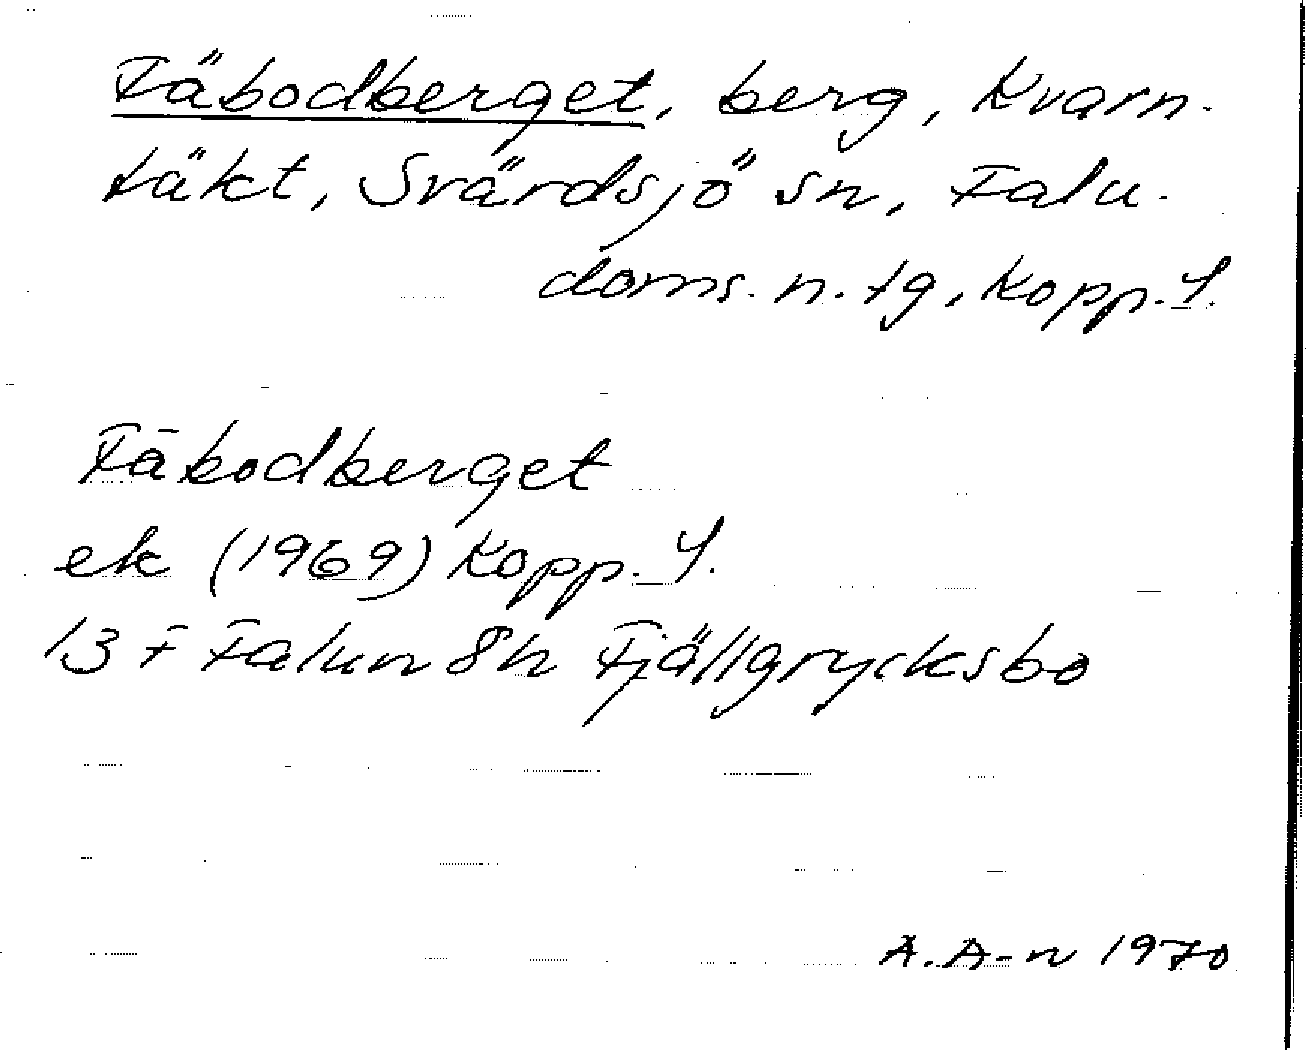 Fäbodberget, berg, Kvarn-
täkt, Svärdsjö sn, Falu-
doms. n. tg, Kopp. l.
Fäbodberget
ek (1969) Kopp. l.
13 F Falun 8h Fjällgrycksbo
A. A-n 1970